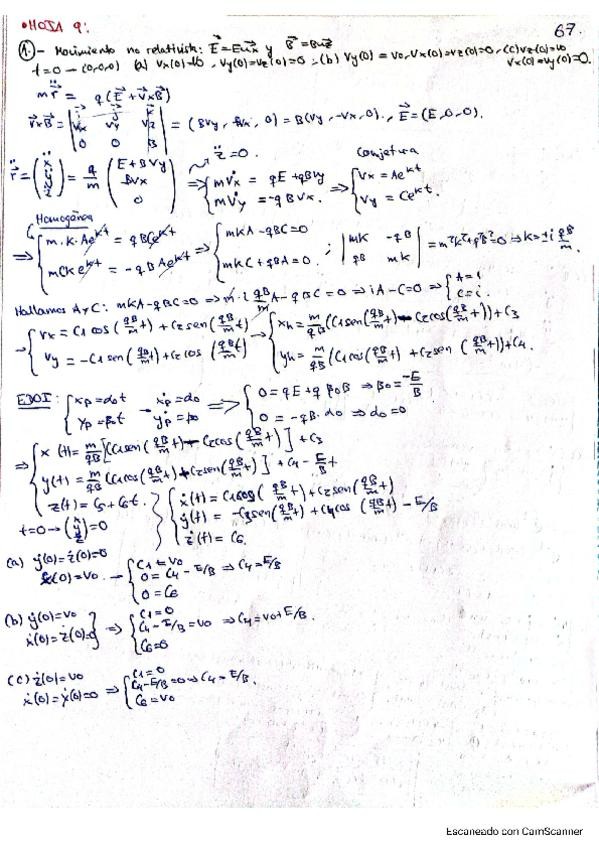 • HOJA 9:
67.
1.) - Movimiento no relativista: E⃗ = Eux⃗ y B⃗ = Buz⃗
t=0 → (0,0,0) (a) Vx(0)=v0, Vy(0)=Vz(0)=0; (b) Vy(0) = v0, Vx(0)=Vz(0)=0, (c) Vz(0)=v0
Vx(0)=Vy(0)=0.
m r̈ = q(E⃗ + v⃗ x B⃗)
v⃗xB⃗ = | i j k ; Vx Vy Vz ; 0 0 B | = (BVy, -BVx, 0) = B(Vy, -Vx, 0). , E⃗ = (E, 0, 0).
r̈ = (ẍ ÿ z̈) = q/m (E + BVy ; BVx ; 0) z̈=0. ⇒ { mV̇x = qE + qBVy ; mV̇y = -qBVx. ⇒ Conjetura { Vx = Ae^kt ; Vy = Ce^kt.
Homogénea
⇒ { m·K·Ae^kt = qBCe^kt ; mCKe^kt = -qBAe^kt ⇒ { mKA - qBC=0 ; mKC + qBA=0. ; | mK -qB ; qB mK | = m²k²+q²B²=0 ⇒ K=±i qB/m.
Hallamos A y C: mKA-qBC=0 ⇒ m·i qB/m A - qBC=0 ⇒ iA-C=0 ⇒ { A=1 ; C=i.
⇒ { Vx = C1 cos(qB/m t) + C2 sen(qB/m t) ; Vy = -C1 sen(qB/m t) + C2 cos(qB/m t) → { xh = m/qB (C1 sen(qB/m t) - C2 cos(qB/m t)) + C3 ; yh = m/qB (C1 cos(qB/m t) + C2 sen(qB/m t)) + C4.
EDOI: { xp = α0t ; yp = β0t → ẋp = α0 ; ẏp = β0 ⇒ { 0 = qE + q β0B ⇒ β0 = -E/B ; 0 = -qB·α0 ⇒ α0=0
⇒ { x(t) = m/qB [C1 sen(qB/m t) - C2 cos(qB/m t)] + C3
y(t) = m/qB [C1 cos(qB/m t) + C2 sen(qB/m t)] + C4 - E/B t
z(t) = C5 + C6·t.
{ ẋ(t) = C1 cos(qB/m t) + C2 sen(qB/m t)
ẏ(t) = -C3 sen(qB/m t) + C4 cos(qB/m t) - E/B
ż(t) = C6.
t=0 → (x y z) = 0
(a) ẏ(0) = ż(0)=0
ẋ(0) = v0. → { C1 = v0 ; 0 = C4 - E/B ⇒ C4=E/B ; 0 = C6
(b) ẏ(0)=v0
ẋ(0)=ż(0)=0 } ⇒ { C1=0 ; C4 - E/B = v0 ⇒ C4 = v0+E/B. ; C6=0
(c) ż(0)=v0
ẋ(0)=ẏ(0)=0 ⇒ { C1=0 ; C4-E/B=0 ⇒ C4 = E/B. ; C6 = v0
Escaneado con CamScanner